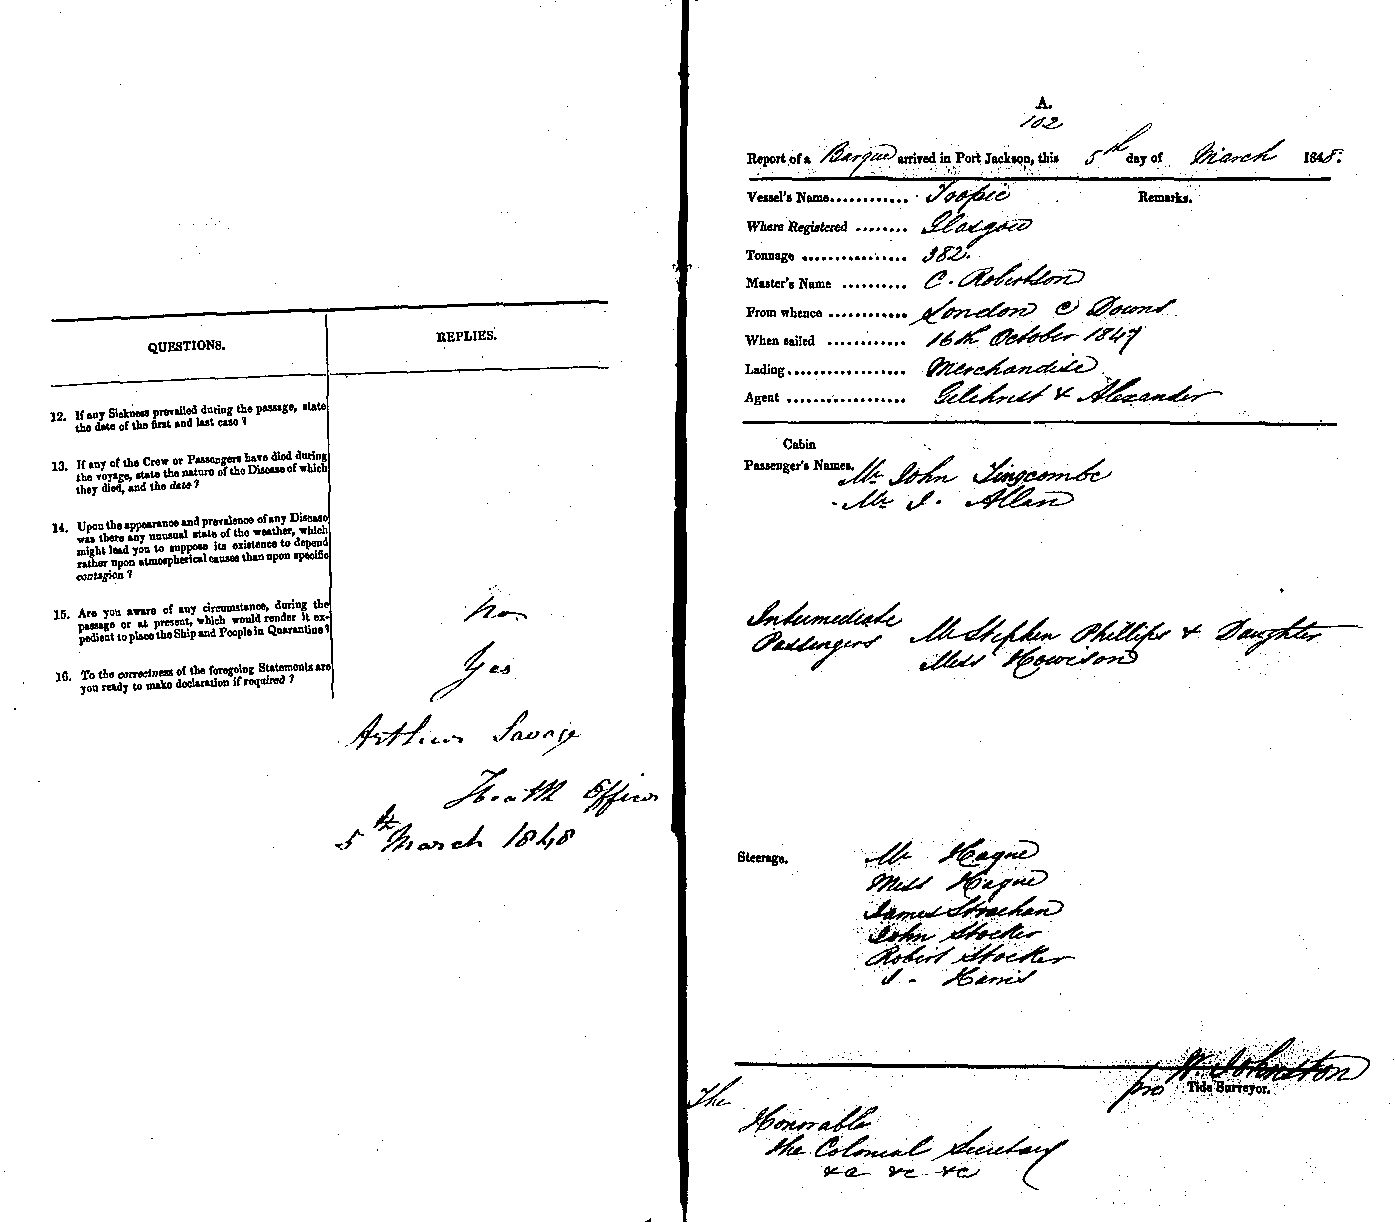 QUESTIONS.
REPLIES.
12. If any Sickness prevailed during the passage, state
the date of the first and last case ?
13. If any of the Crew or Passengers have died during
the voyage, state the nature of the Disease of which
they died, and the date ?
14. Upon the appearance and prevalence of any Disease
was there any unusual state of the weather, which
might lead you to suppose its existence to depend
rather upon atmospherical causes than upon specific
contagion ?
15. Are you aware of any circumstance, during the
passage or at present, which would render it ex-
pedient to place the Ship and People in Quarantine ?
No
16. To the correctness of the foregoing Statements are
you ready to make declaration if required ?
Yes
Arthur Savage
Health Officer
5th March 1848
A.
102
Report of a Barque arrived in Port Jackson, this 5th day of March 1848.
Vessel's Name............ Tropic
Remarks.
Where Registered ........ Glasgow
Tonnage ................ 382.
Master's Name .......... C. Robertson
From whence ............ London & Downs
When sailed ............ 16th October 1847
Lading.................. Merchandise
Agent .................. Gilchrist & Alexander
Cabin
Passenger's Names. Mr John Tingcombe
Mr I. Allan
Intermediate
Passengers Mr Stephen Phillips & Daughter
Miss Howison
Steerage. Mr Hague
Miss Hague
James Strachan
John Stocker
Robert Stocker
I - Harris
pro W. Johnston
Tide Surveyor.
The
Honorable
the Colonial Secretary
&c &c &c